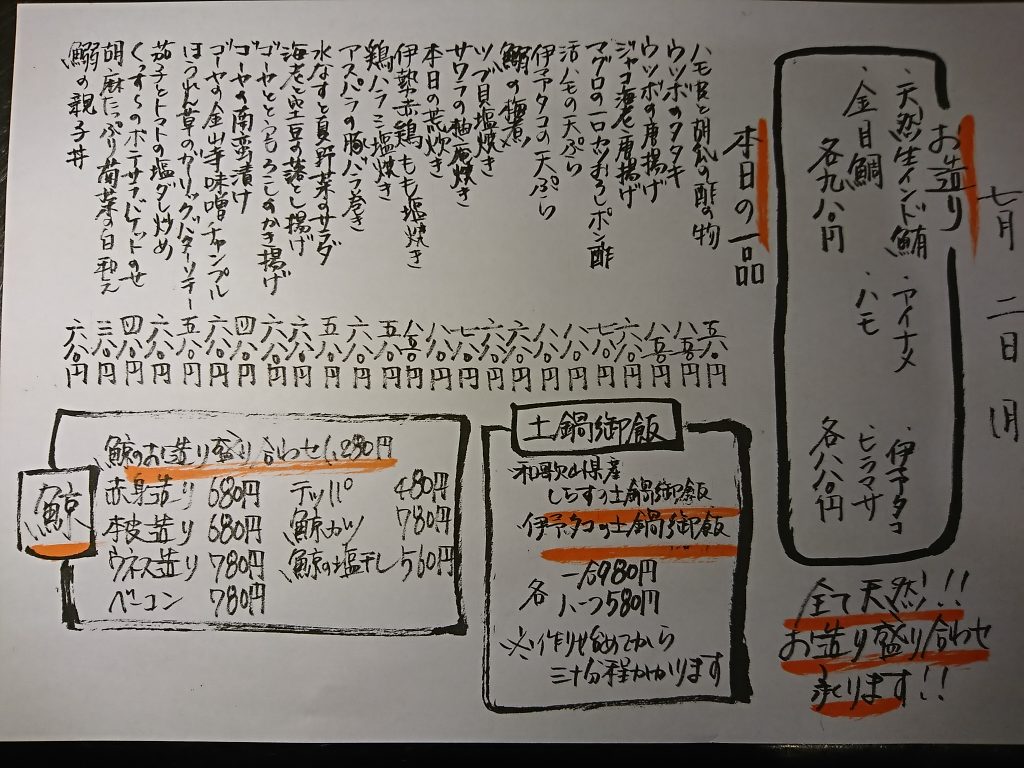 七月二日(月)
お造り
・天然生インド鮪 ・アイナメ ・伊予タコ
・金目鯛 ・ハモ ・ヒラマサ
各九八〇円 各八八〇円
全て天然!!
お造り盛り合わせ
承ります!!
本日の一品
ハモ皮と胡瓜の酢の物 五八〇円
ウツボのタタキ 八五〇円
ウツボの唐揚げ 八五〇円
ジャコ海老唐揚げ 六八〇円
マグロの一口カツおろしポン酢 七八〇円
活ハモの天ぷら 八八〇円
伊予タコの天ぷら 八八〇円
鰯の梅煮 六八〇円
ツブ貝塩焼き 六八〇円
サワラの柚庵焼き 七八〇円
本日の荒炊き 八八〇円
伊勢赤鶏もも塩焼き 八五〇円
鶏ハラミ塩焼き 五八〇円
アスパラの豚バラ巻き 六八〇円
水なすと夏野菜のサラダ 五八〇円
海老と空豆の落とし揚げ 六八〇円
ゴーヤととうもろこしのかき揚げ 六八〇円
ゴーヤの南蛮漬け 四八〇円
ゴーヤの金山寺味噌チャンプル 六八〇円
ほうれん草のガーリックバターソテー 五八〇円
茄子とトマトの塩ダレ炒め 六八〇円
のポテサラバゲットのせ 四八〇円
胡麻たっぷり菊菜の白和え 三八〇円
鰯の親子丼 六八〇円
土鍋御飯
和歌山県産
しらすの土鍋御飯
伊予タコの土鍋御飯
各 一合980円
ハーフ580円
※作り始めてから
三十分程かかります
鯨
鯨のお造り盛り合わせ1,280円
赤身造り 680円 テッパ 480円
本皮造り 680円 鯨カツ 780円
ウネス造り 780円 鯨の塩干し 560円
ベーコン 780円